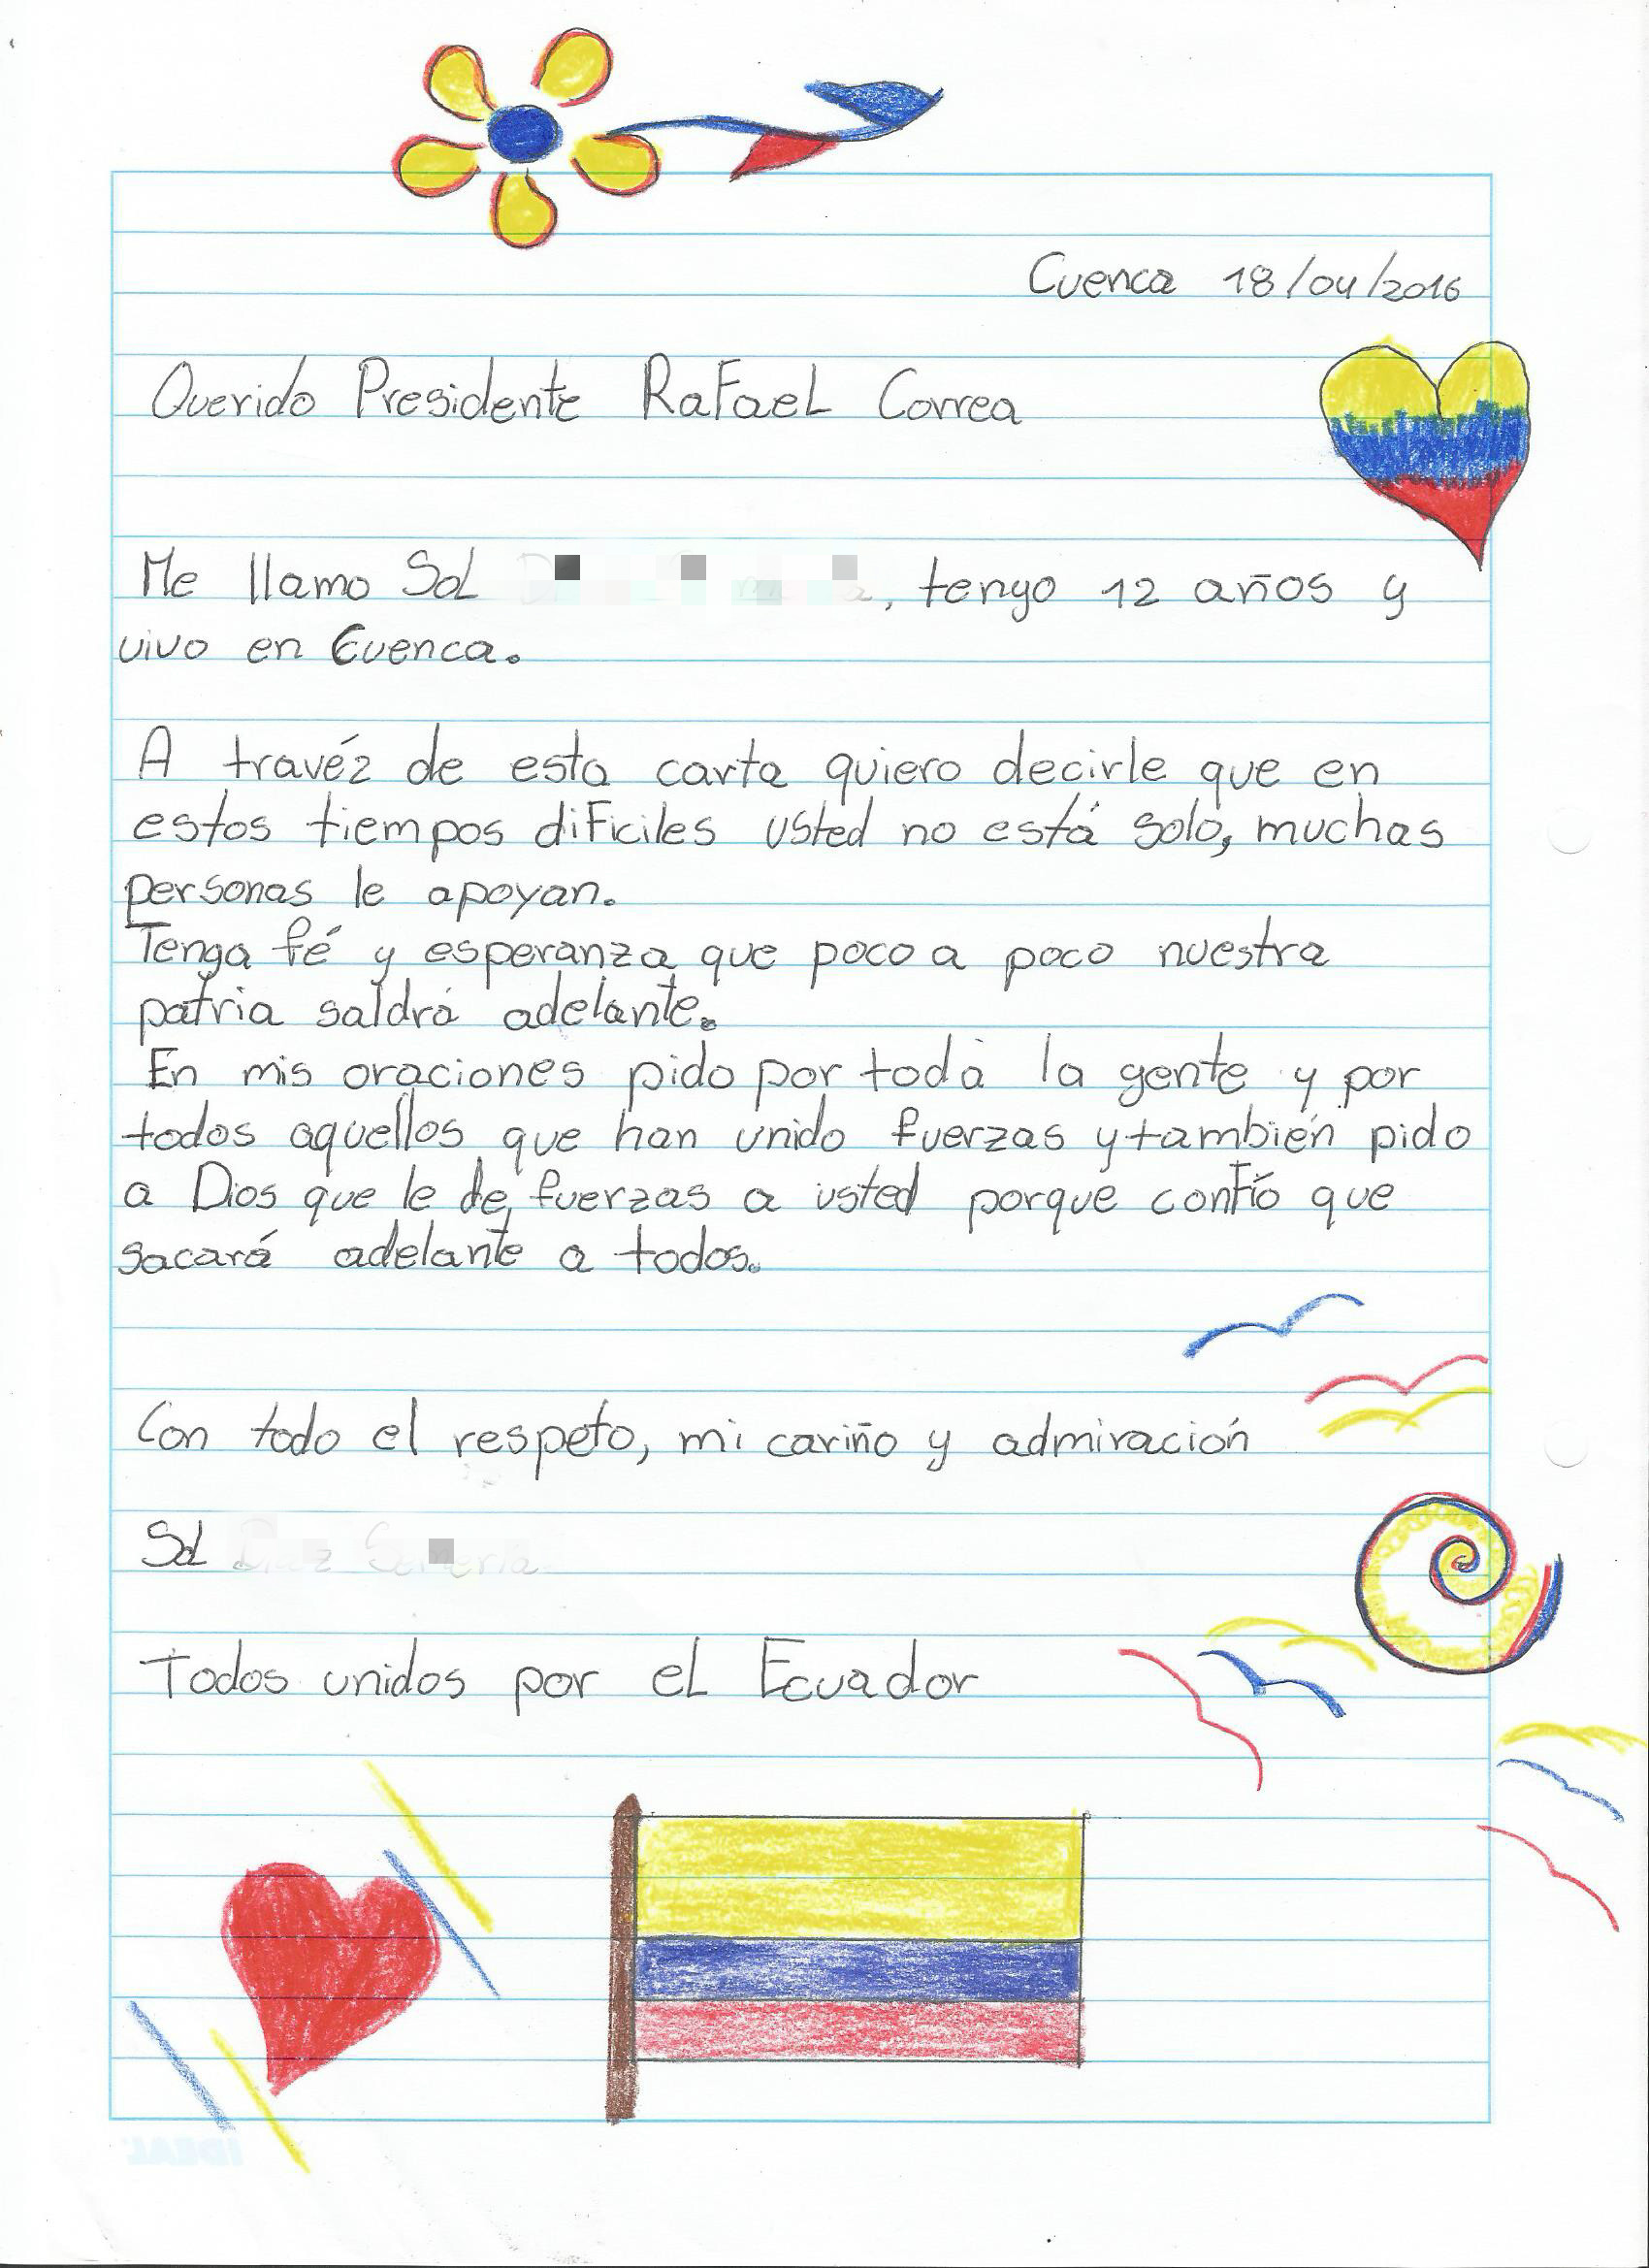 Cuenca 18/04/2016
Querido Presidente RaFaeL Correa
Me llamo SoL , tengo 12 años y
vivo en Cuenca.
A travéz de esta carta quiero decirle que en
estos tiempos diFiciles usted no está solo, muchas
personas le apoyan.
Tenga fé y esperanza que poco a poco nuestra
patria saldrá adelante.
En mis oraciones pido por toda la gente y por
todos aquellos que han unido fuerzas y también pido
a Dios que le de fuerzas a usted porque conFío que
sacará adelante a todos.
Con todo el respeto, mi cariño y admiración
SoL
Todos unidos por eL Ecuador
IDEAL